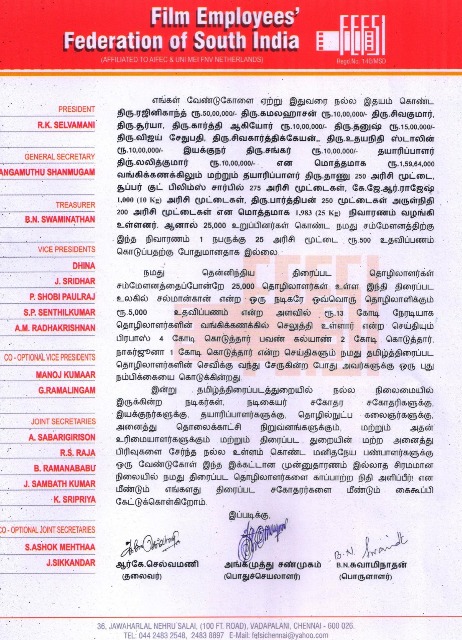 Film Employees'
Federation of South India
(AFFILIATED TO AIFEC & UNI MEI FNV NETHERLANDS)
FEFSI
Regd No. 140/MSD
PRESIDENT
R.K. SELVAMANI
GENERAL SECRETARY
ANGAMUTHU SHANMUGAM
TREASURER
B.N. SWAMINATHAN
VICE PRESIDENTS
DHINA
J. SRIDHAR
P. SHOBI PAULRAJ
S.P. SENTHILKUMAR
A.M. RADHAKRISHNAN
CO - OPTIONAL VICE PRESIDENTS
MANOJ KUMAAR
G.RAMALINGAM
JOINT SECRETARIES
A. SABARIGIRISON
R.S. RAJA
B. RAMANABABU
J. SAMBATH KUMAR
K. SRIPRIYA
CO - OPTIONAL JOINT SECRETARIES
S.ASHOK MEHTHAA
J.SIKKANDAR
எங்கள் வேண்டுகோளை ஏற்று இதுவரை நல்ல இதயம் கொண்ட
திரு.ரஜினிகாந்த் ரூ.50,00,000/- திரு.கமலஹாசன் ரூ.10,00,000/- திரு.சிவகுமார்,
திரு.சூர்யா, திரு.கார்த்தி ஆகியோர் ரூ.10,00,000/- திரு.தனுஷ் ரூ.15,00,000/-
திரு.விஜய் சேதுபதி, திரு.சிவகார்த்திகேயன்., திரு.உதயநிதி ஸ்டாலின்
ரூ.10,00,000/- இயக்குநர் திரு.சங்கர் ரூ.10,00,000/- தயாரிப்பாளர்
திரு.லலித்குமார் ரூ.10,00,000/- என மொத்தமாக ரூ.1,59,64,000
வங்கிக்கணக்கிலும் மற்றும் தயாரிப்பாளர் திரு.தாணு 250 அரிசி மூட்டை,
சூப்பர் குட் பிலிம்ஸ் சார்பில் 275 அரிசி மூட்டைகள், கே.ஜே.ஆர்.ராஜேஷ்
1,000 (10 Kg) அரிசி மூட்டைகள், திரு.பார்த்திபன் 250 மூட்டைகள் அருள்நிதி
200 அரிசி மூட்டைகள் என மொத்தமாக 1,983 (25 Kg) நிவாரணம் வழங்கி
உள்ளனர். ஆனால் 25,000 உறுப்பினர்கள் கொண்ட நமது சம்மேளனத்திற்கு
இந்த நிவாரணம் 1 நபருக்கு 25 அரிசி மூட்டை ரூ.500 உதவிப்பணம்
கொடுப்பதற்கு போதுமானதாக இல்லை.
நமது தென்னிந்திய திரைப்பட தொழிலாளர்கள்
சம்மேளனத்தைப்போன்றே 25,000 தொழிலாளர்கள் உள்ள இந்தி திரைப்பட
உலகில் சல்மான்கான் என்ற ஒரு நடிகரே ஒவ்வொரு தொழிலாளிக்கும்
ரூ.5,000 உதவிப்பணம் என்ற அளவில் ரூ.13 கோடி நேரடியாக
தொழிலாளர்களின் வங்கிகணக்கில் செலுத்தி உள்ளார் என்ற செய்தியும்
பிரபாஸ் 4 கோடி கொடுத்தார் பவண் கல்யாண் 2 கோடி கொடுத்தார்,
நாகர்ஜுனா 1 கோடி கொடுத்தார் என்ற செய்திகளும் நமது தமிழ்திரைப்பட
தொழிலாளர்களின் செவிக்கு வந்து சேருகின்ற போது அவர்களுக்கு ஒரு புது
நம்பிக்கையை கொடுக்கிறது.
இன்று தமிழ்த்திரைப்படத்துறையில் நல்ல நிலைமையில்
இருக்கின்ற நடிகர்கள், நடிகையர் சகோதர சகோதரிகளுக்கு,
இயக்குநர்களுக்கு, தயாரிப்பாளர்களுக்கு, தொழில்நுட்ப கலைஞர்களுக்கு,
அனைத்து தொலைக்காட்சி நிறுவனங்களுக்கும், மற்றும் அதன்
உரிமையாளர்களுக்கும் மற்றும் திரைப்பட துறையின் மற்ற அனைத்து
பிரிவுகளை சேர்ந்த நல்ல உள்ளம் கொண்ட மனிதநேய பண்பாளர்களுக்கு
ஒரு வேண்டுகோள் இந்த இக்கட்டான முன்னுதாரணம் இல்லாத சிரமமான
நிலையில் நமது திரைப்பட தொழிலாளர்களை காப்பாற்ற நிதி அளிப்பீர்! என
மீண்டும் எங்களது திரைப்பட சகோதரர்களை மீண்டும் கைகூப்பி
கேட்டுக்கொள்கிறோம்.
இப்படிக்கு,
B.N. Swamindt
ஆர்கே.செல்வமணி அங்கமுத்து சண்முகம் B.N.சுவாமிநாதன்
(தலைவர்) (பொதுச்செயலாளர்) (பொருளாளர்)
36, JAWAHARLAL NEHRU SALAI, (100 FT. ROAD), VADAPALANI, CHENNAI - 600 026.
TEL: 044 2483 2548, 2483 8897 E-Mail: fefsichennai@yahoo.com